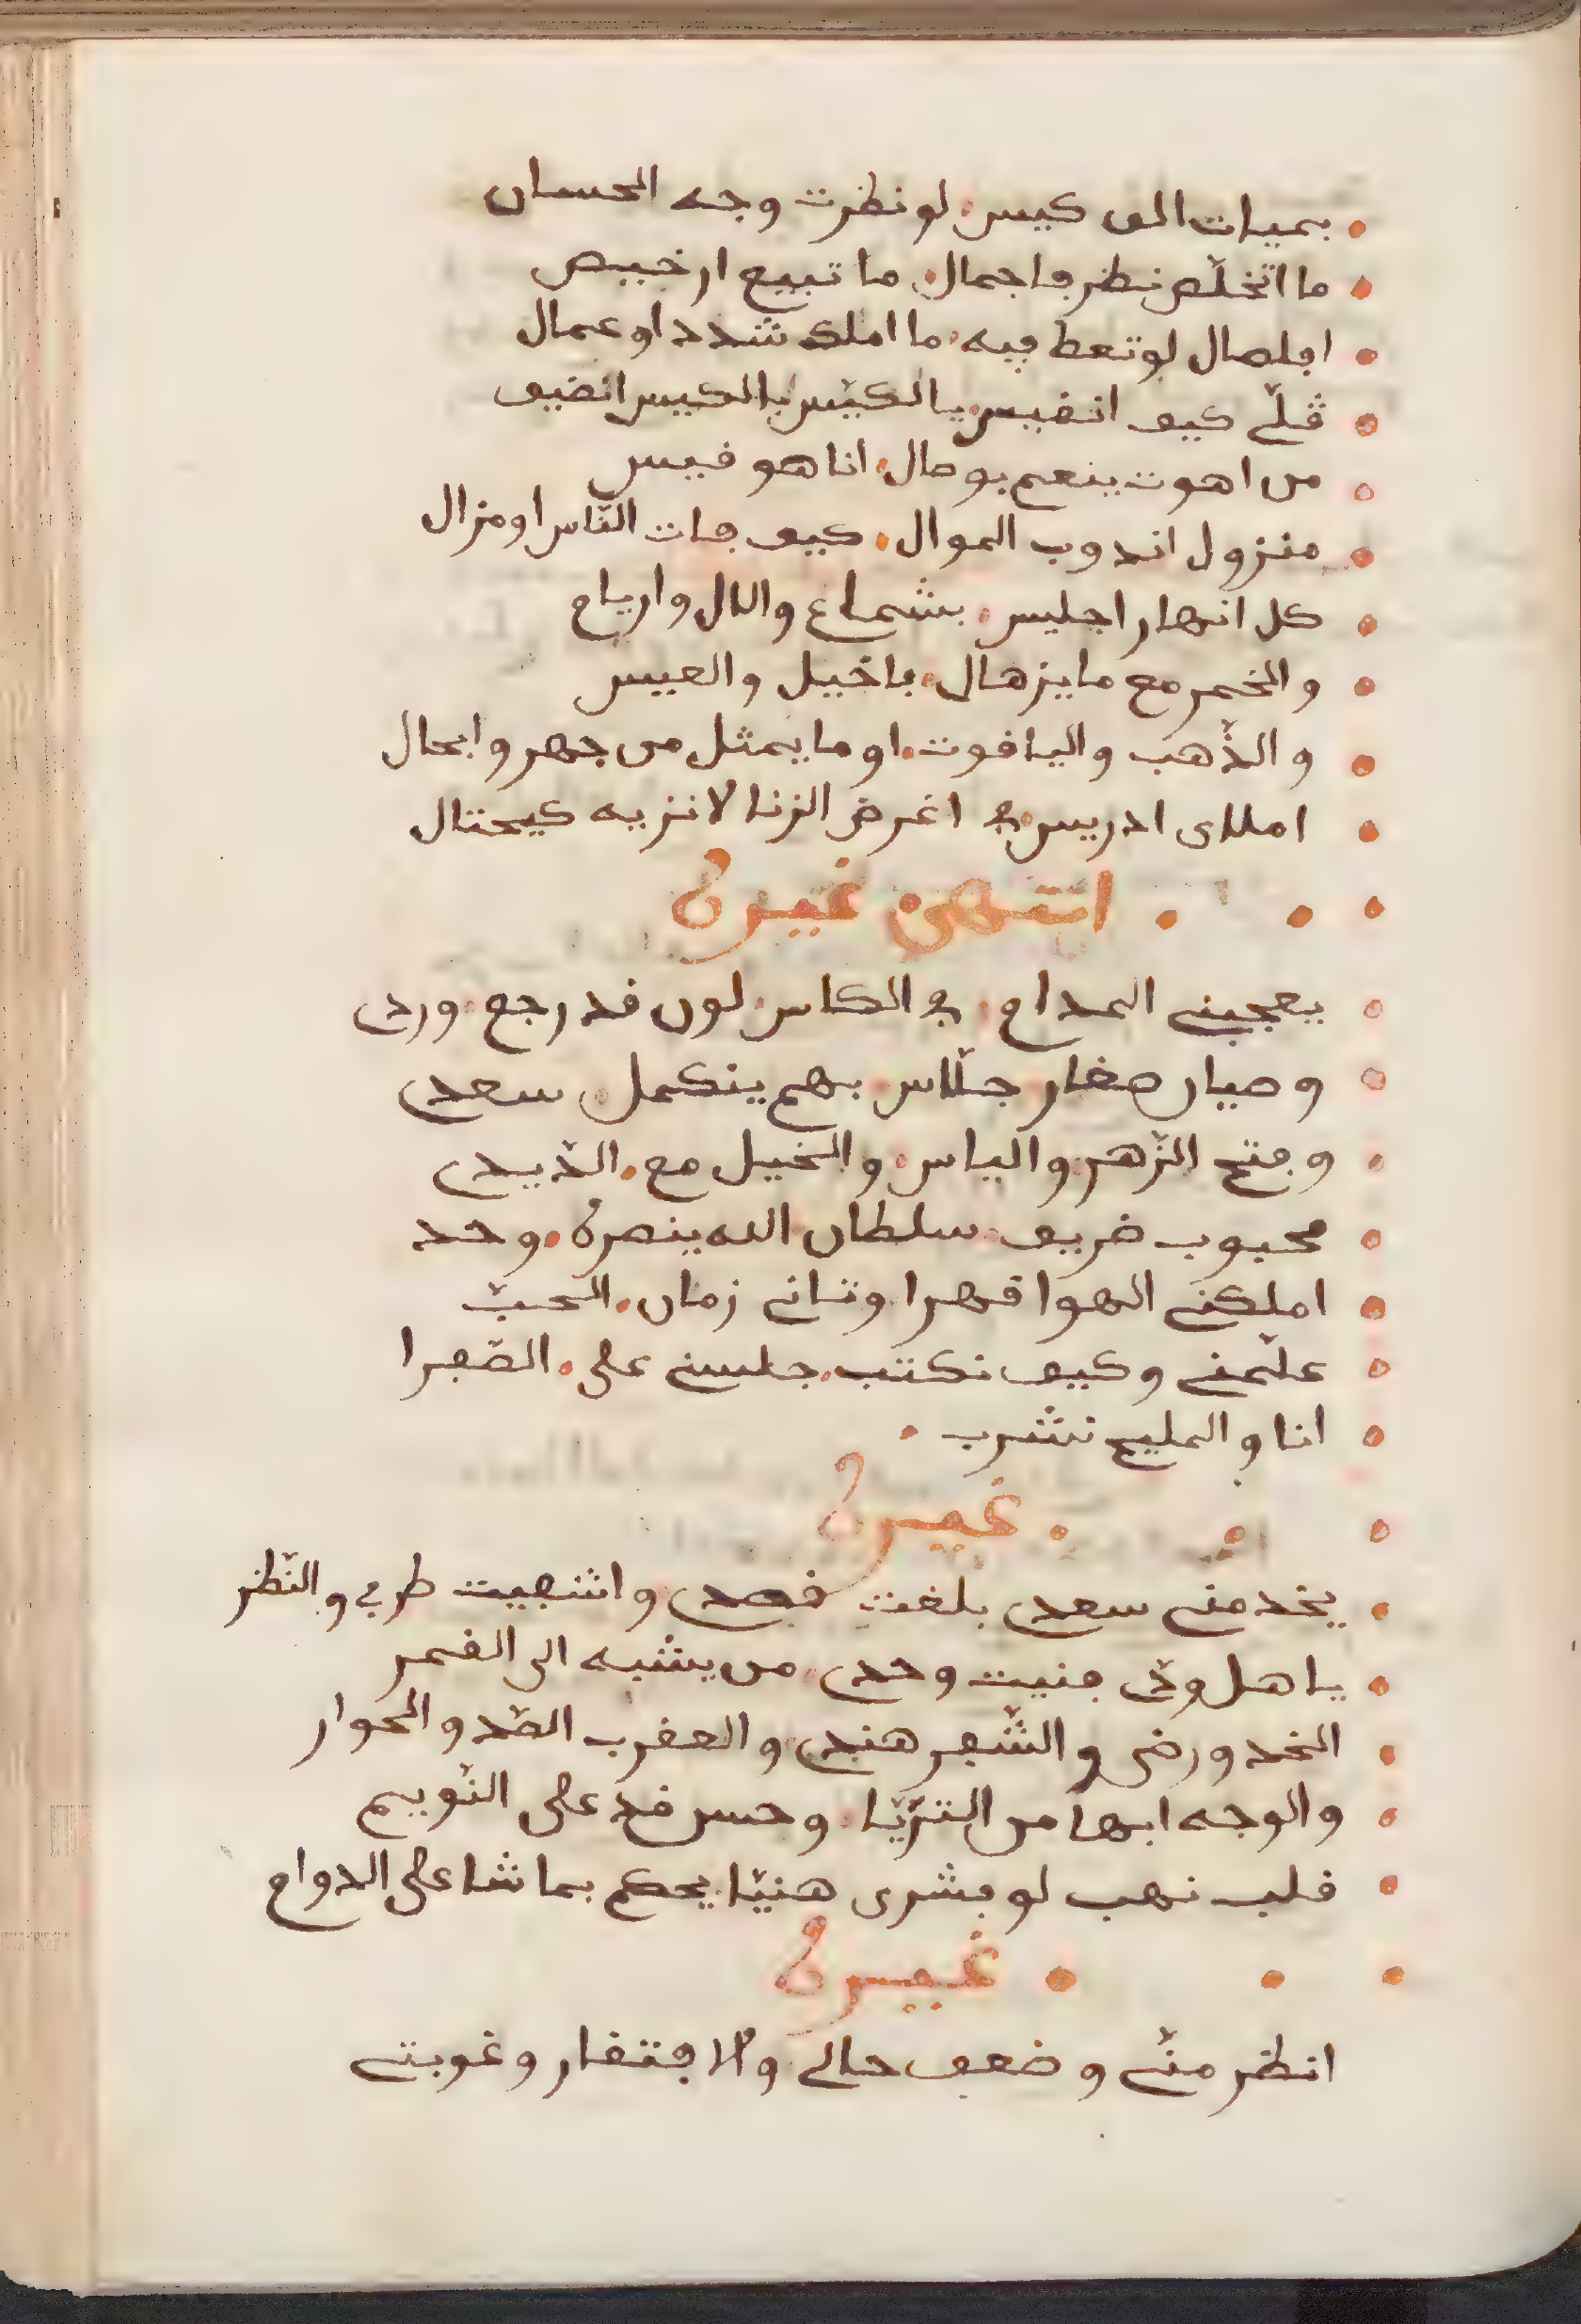 بميات الف كيس. لو نظرت وجه الحسان
ما اتخلّص نظر فاجمال. ما تبيع ارخيص
افلصال لو تعط فيه. ما املك شدد او عمال
قلّي كيف انقيس يا الكيّس يا الكيس انضيف
من اهوت ينعم بوصال. انا هو قيس
منزول اندوب الموال. كيف جات النّاس او مزال
كل انهار اجليس. بشماع والال وارياح
والخمر مع ما يزهال. باخيل والعيس
والذّهب والياقوت. او ما يمثل من جهر وابحال
املاى ادريس. في اغرض الزنا لا نزيه كيحتال
انتهى غيره
يعجبني المدام. في الكاس. لون قد رجع. وردي
وصيار صغار جلّاس. بهم ينكمل. سعدي
وفتح الزّهر والياس. والخيل مع. الذّيدي
محبوب ضريف. سلطان الله ينصره. وحد
املكني الهوا قهرا وتاني زمان. الحبّ
علّمني وكيف نكتب. جلسني على. الصّفرا
انا والمليح نشرب.
غيره
يخدمني سعدي بلغت قصدي واشتهيت طرفي والنّظر
يا هل ودّي فنيت وحدي. من يشبه الى القمر
الخد وردي والشّعر هندي. والعقرب الصّد والحوار
والوجه ابها من الثّريّا. وحسن قد على النّويم
قلب نهب لو مشرى هنيّا. يحكم بما شا على الدوام
غيره
انظر منّي وضعف حالي والافتقار وغربتي